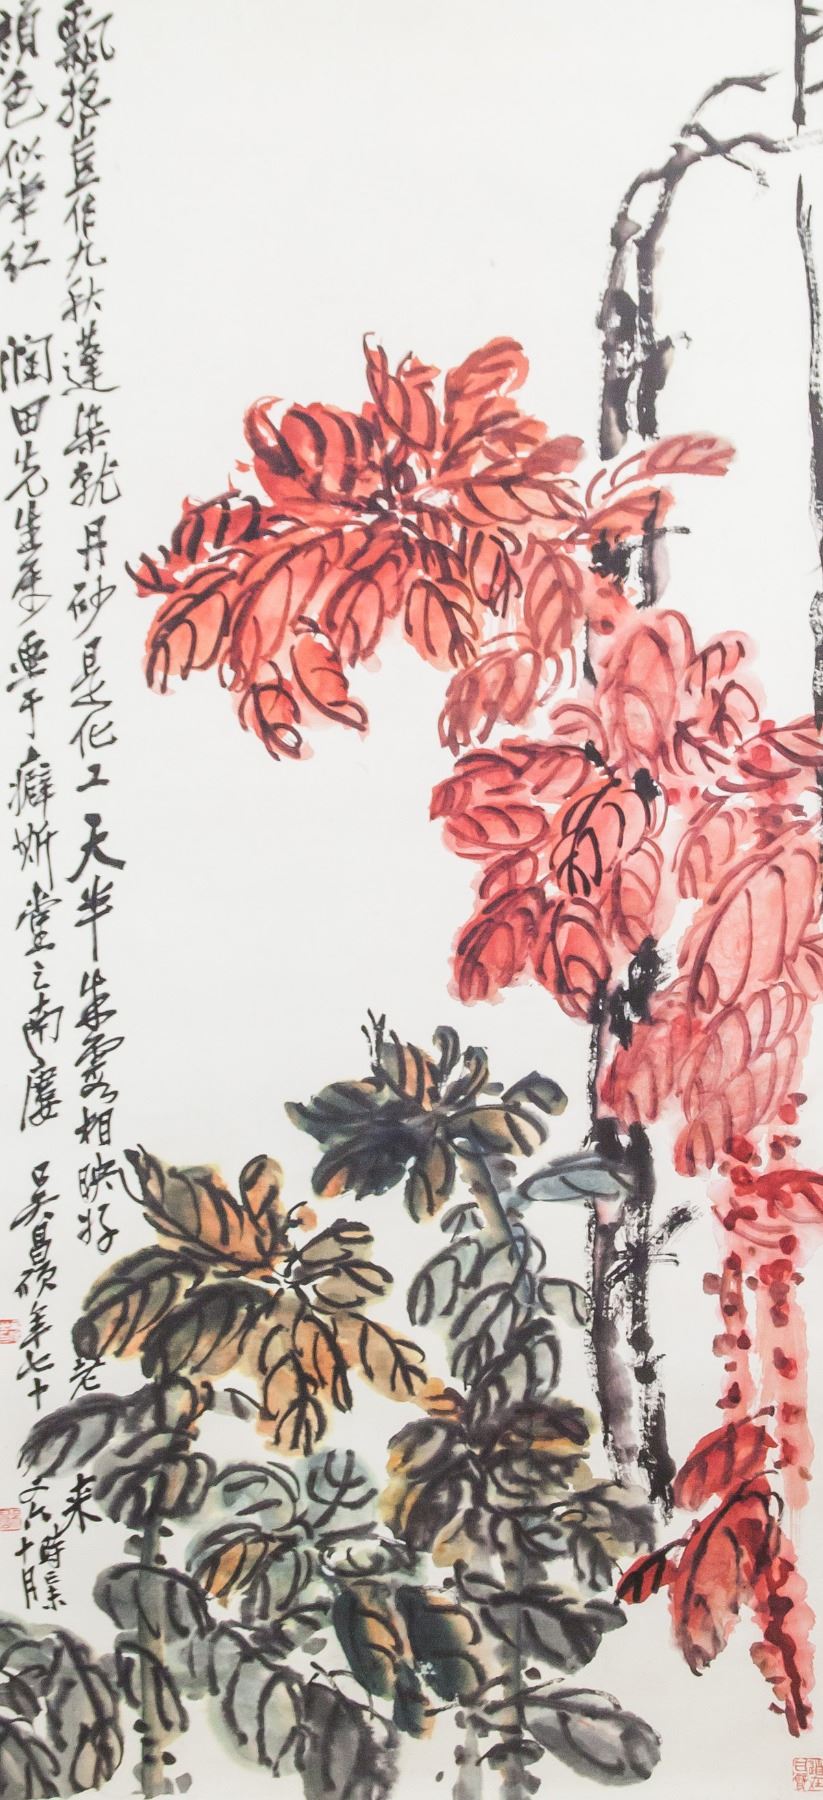 飄搖豈作九秋蓬染就丹砂是化工天半朱霞相映好老來
顏色似花紅 潤田先生屬畫于癖斯堂之南廔 吳昌碩年七十又六
時己未十月